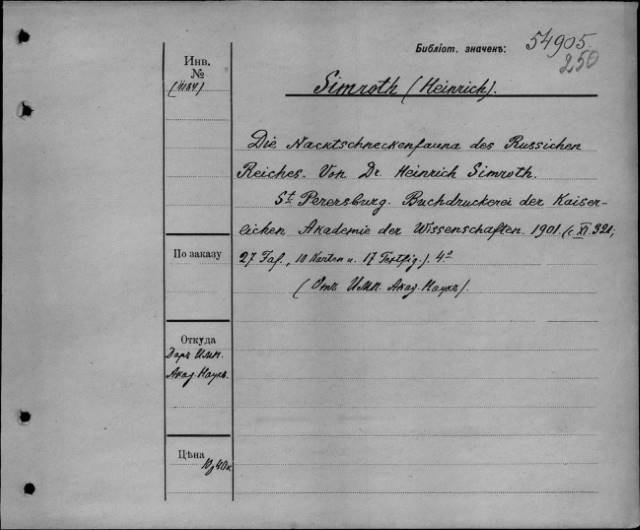 Библіот. значекъ: 54905.
250
Инв.
№
Simroth (Heinrich).
Die Nacktschneckenfauna des Russichen
Reiches. Von Dr. Heinrich Simroth.
St. Perersburg. Buchdruckerei der Kaiser-
lichen Akademie der Wissenschaften. 1901. (c XI 321;
По заказу
27 Taf., 10 Karten u. 17 Textfig.). 4º
(Отъ Имп. Акад. Наукъ).
Откуда
Даръ Имп.
Акад. Наукъ.
Цѣна
10 р 40 к.